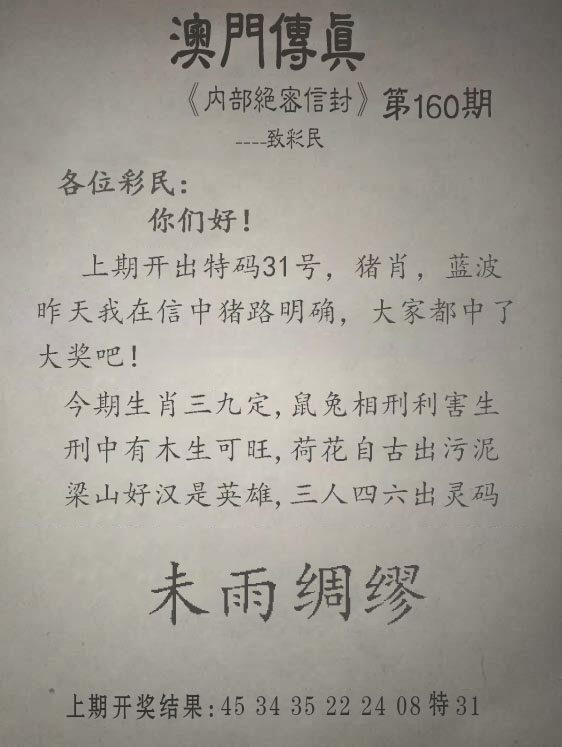 澳門傳眞
《内部絕密信封》第160期
----致彩民
各位彩民:
你们好!
上期开出特码31号，猪肖，蓝波
昨天我在信中猪路明确，大家都中了
大奖吧!
今期生肖三九定,鼠兔相刑利害生
刑中有木生可旺,荷花自古出污泥
梁山好汉是英雄,三人四六出灵码
未雨绸缪
上期开奖结果:45 34 35 22 24 08 特31